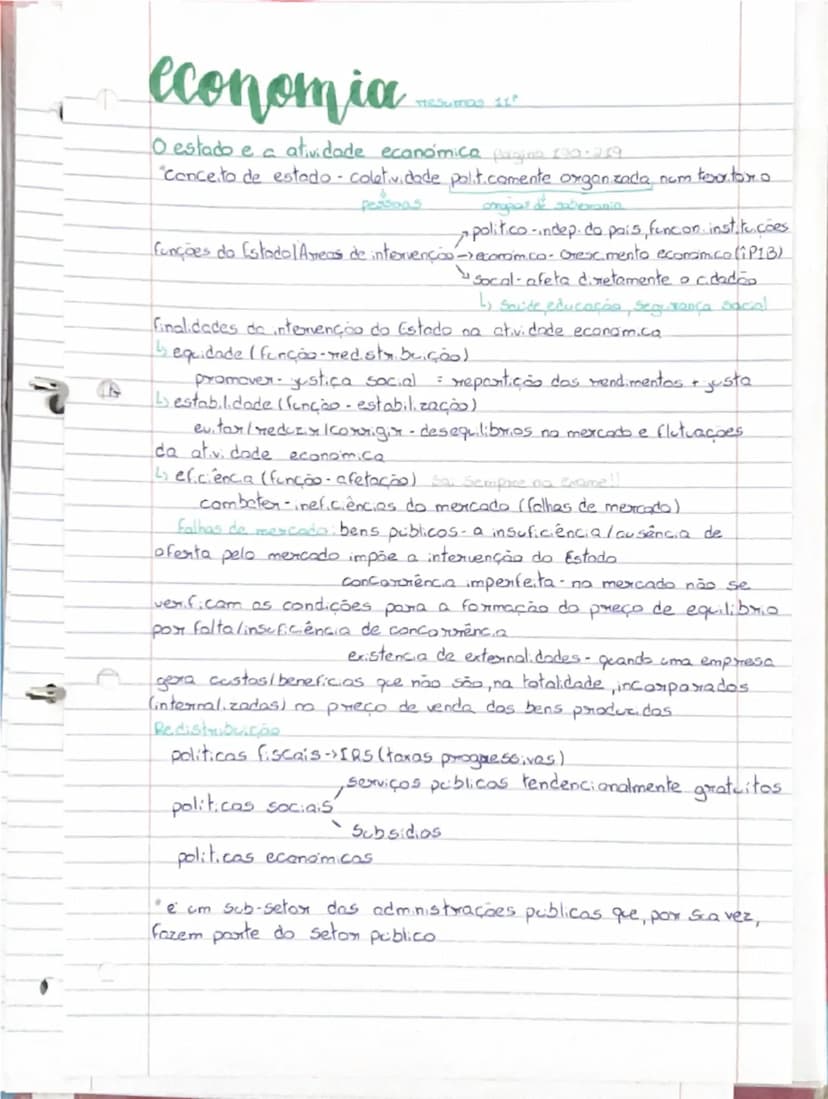 economia resumos 11º
O estado e a atividade económica página 190-219
*conceito de estado - coletividade politicamente organizada num território
pessoas órgãos de soberania
político - indep. do país, funcion. instituições
funções do Estado/Áreas de intervenção → económico - crescimento económico (↑PIB)
social - afeta diretamente o cidadão
↳ Saúde, educação, segurança social
finalidades da intervenção do Estado na atividade económica
↳ equidade (função - redistribuição)
promover - justiça social = repartição dos rendimentos + justa
↳ estabilidade (função - estabilização)
evitar/reduzir/corrigir - desequilíbrios no mercado e flutuações
da atividade económica
↳ eficiência (função - afetação) sai sempre no exame!!
combater - ineficiências do mercado (falhas de mercado)
falhas de mercado: bens públicos - a insuficiência/ausência de
oferta pelo mercado impõe a intervenção do Estado
concorrência imperfeita - no mercado não se
verificam as condições para a formação do preço de equilíbrio
por falta/insuficiência de concorrência
existencia de externalidades - quando uma empresa
gera custos/benefícios que não são, na totalidade, incorporados
(internalizados) no preço de venda dos bens produzidos
Redistribuição
políticas fiscais → IRS (taxas progressivas)
serviços públicos tendencionalmente gratuitos
políticas sociais
Subsídios
políticas económicas
*é um sub-setor das administrações públicas que, por sua vez,
fazem parte do setor público